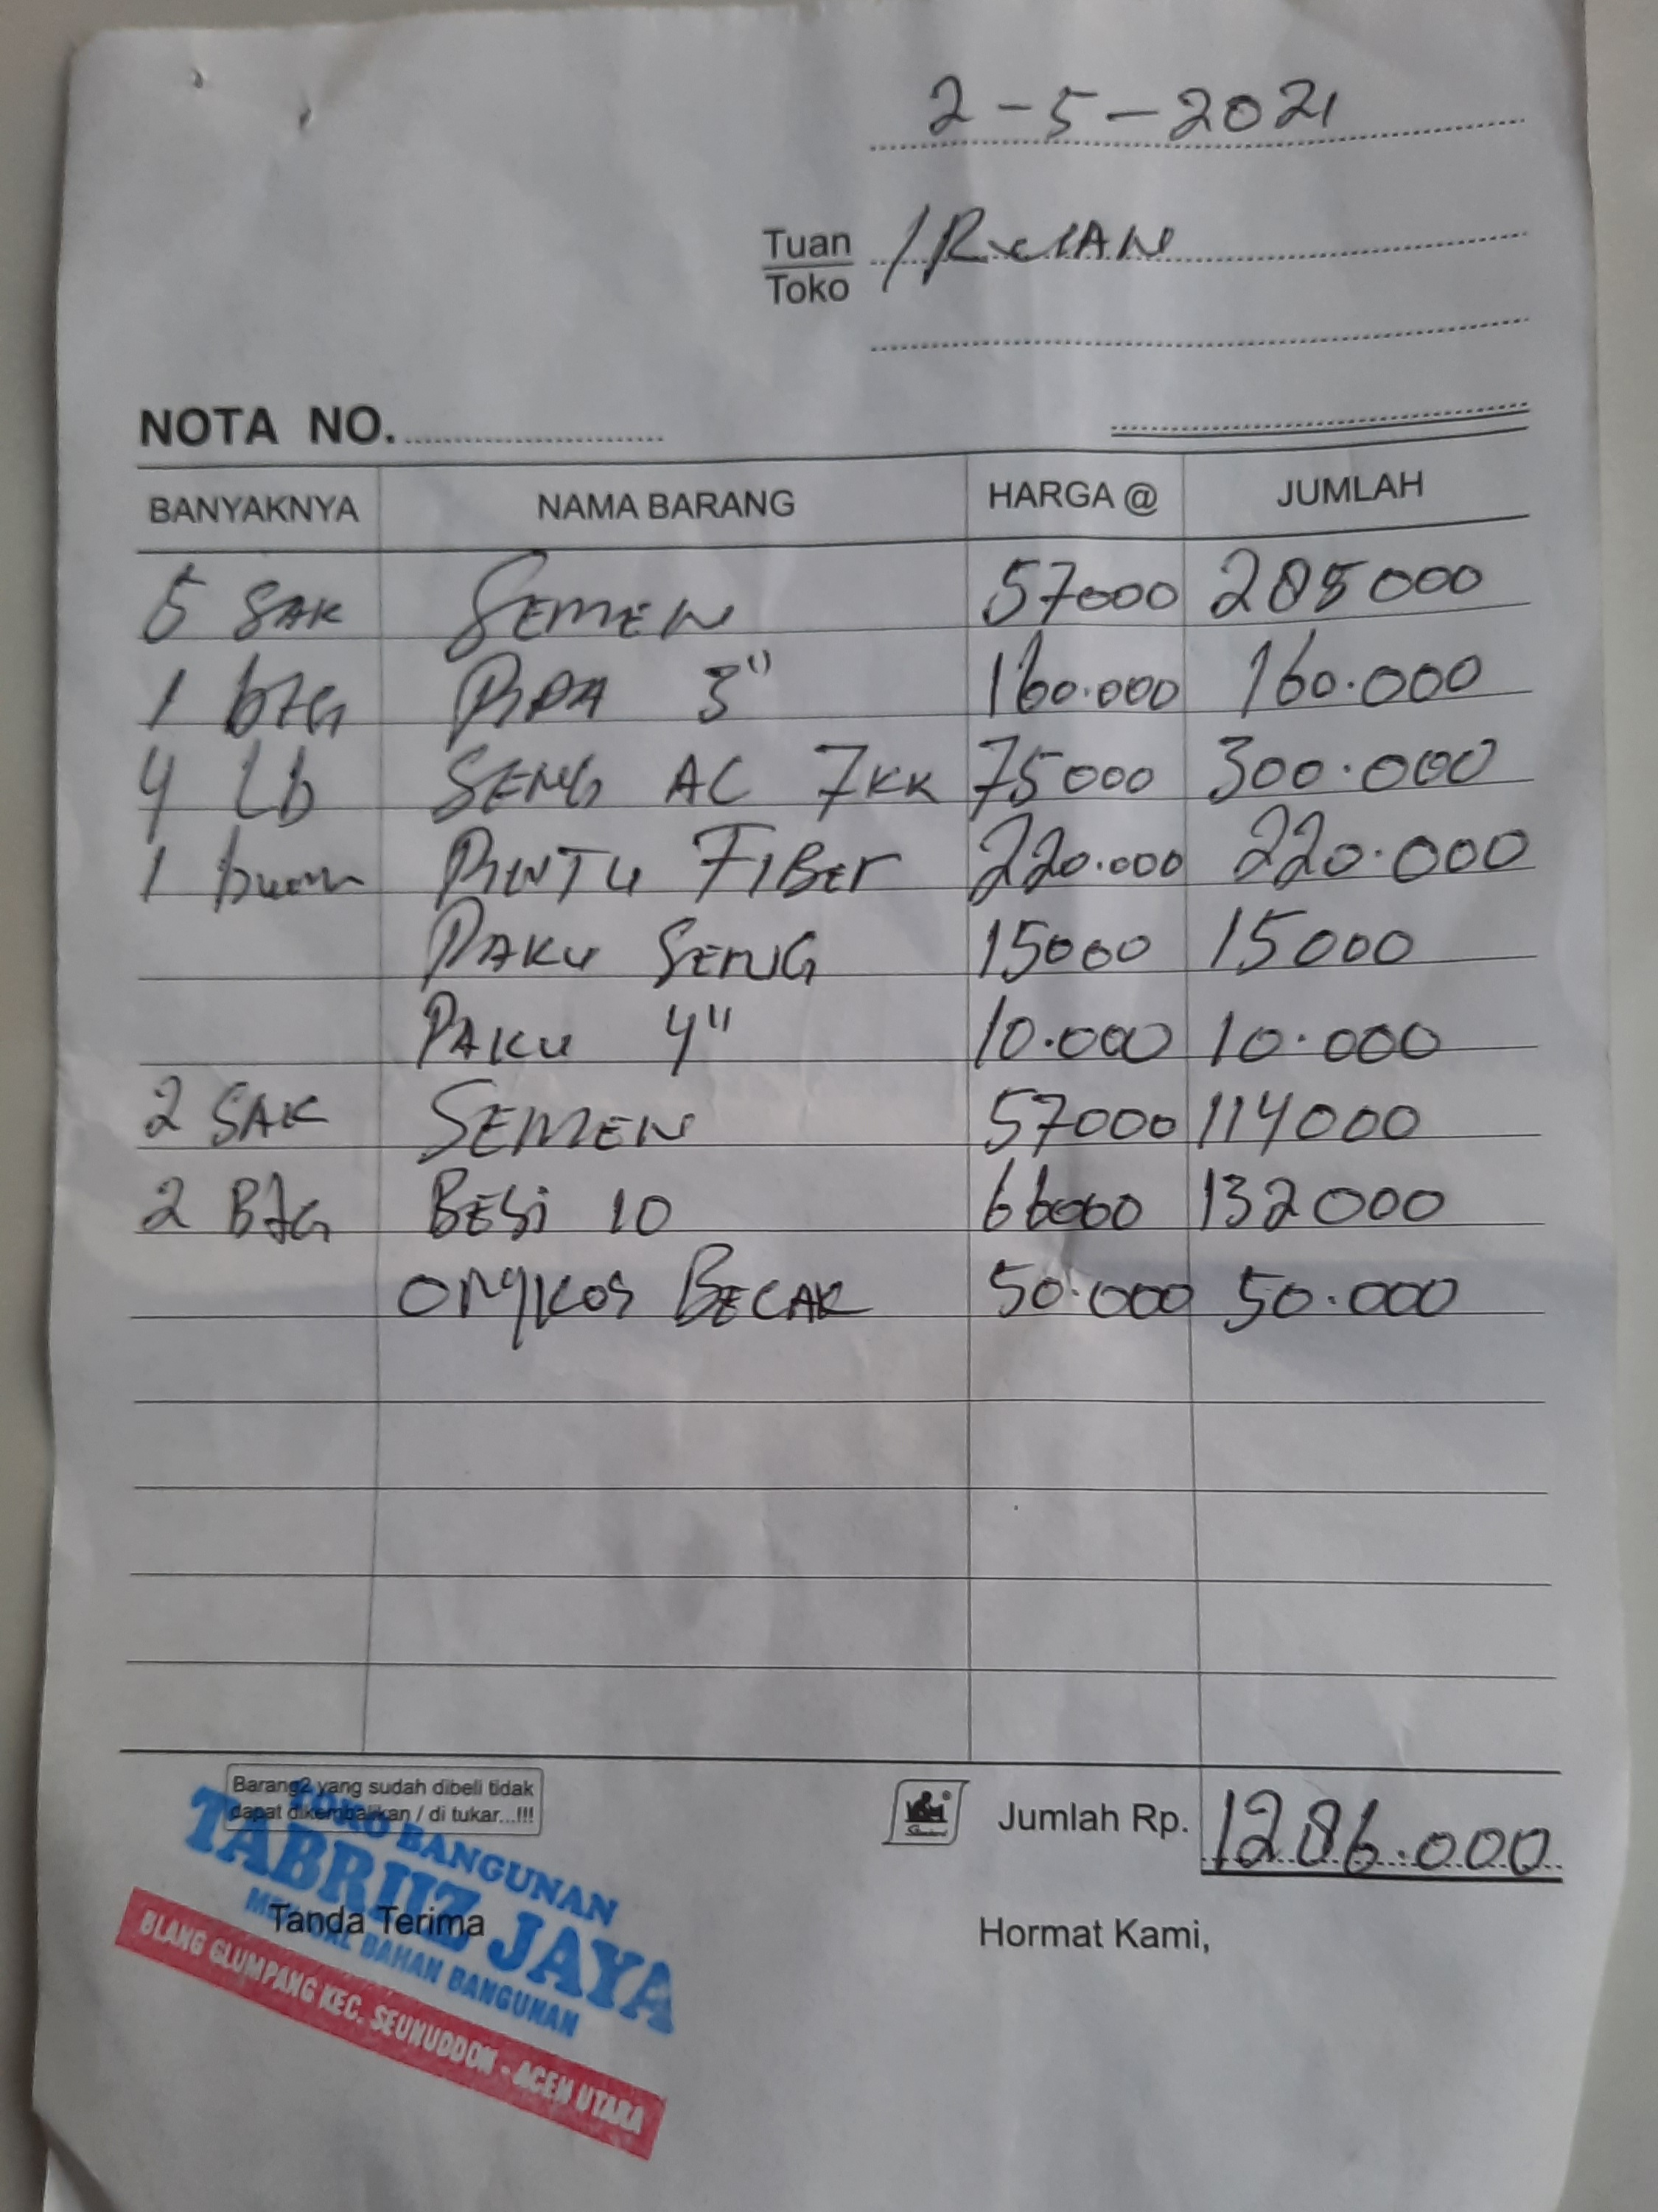 2-5-2021
Tuan IRWAN
Toko
NOTA NO.
BANYAKNYA NAMA BARANG HARGA @ JUMLAH
5 SAK SEMEN 57000 285000
1 btG PIPA 3" 160.000 160.000
4 Lb SENG AC 7KK 75000 300.000
1 PINTU FIBEr 220.000 220.000
PAKU SENG 15000 15000
PAKU 4" 10.000 10.000
2 SAK SEMEN 57000 114000
2 BtG BESi 10 66000 132000
ONgKOS BECAK 50.000 50.000
Barang2 yang sudah dibeli tidak
dapat dikembalikan / di tukar...!!!
Jumlah Rp. 1286.000
TOKO BANGUNAN
TABRIIZ JAYA
MENJUAL BAHAN BANGUNAN
BLANG GLUMPANG KEC. SEUNUDDON - ACEH UTARA
Tanda Terima Hormat Kami,